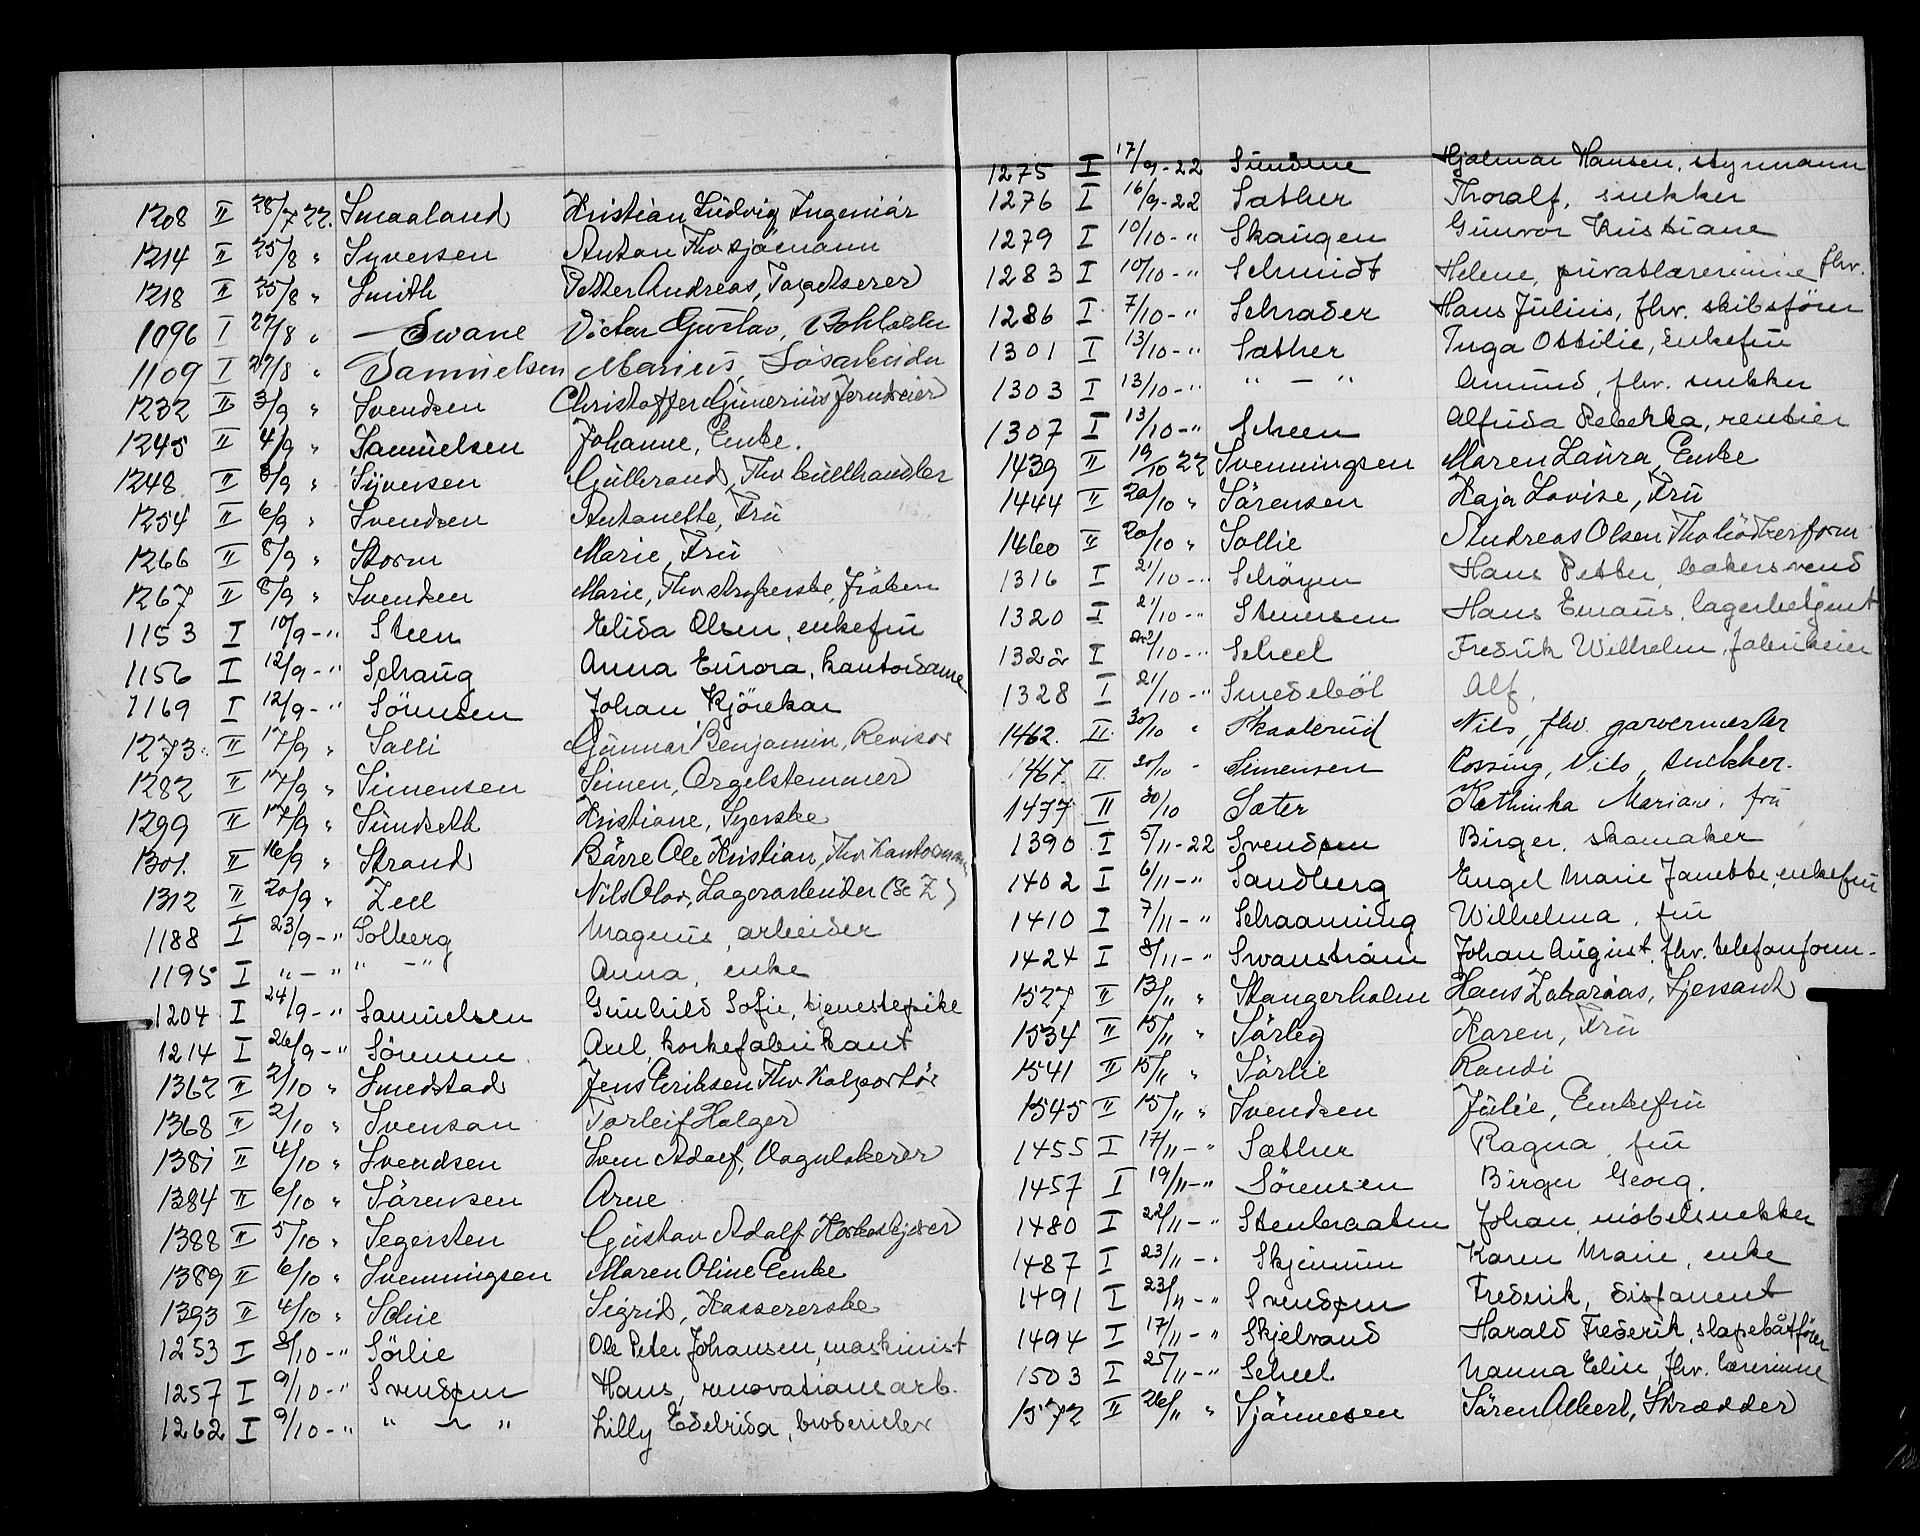 1208 II 28/7 22. Smaaland Kristian Ludvig Ingeniör
1214 II 25/8 " Syversen Anton Fhv sjömann
1218 II 25/8 " Smith Petter Andreas, Tapetserer
1096 I 27/8 " Swane Victor Gustav, Bokholder
1109 I 27/8 " Samuelsen Marius, Løsarbeider
1232 II 3/9 " Svendsen Christoffer Gunerius Jerndreier
1245 II 4/9 " Samuelsen Johanne, Enke.
1248 II 5/9 " Syversen Gulbrand, Fhv kullhandler
1254 II 6/9 " Svendsen Antonette, Frü
1266 II 8/9 " Storm Marie, Frü
1267 II 8/9 " Svendsen Marie, Fhv strykerske, Fröken
1153 I 10/9-" Steen Elida Olsen, enkefru
1156 I 12/9-" Schaug Anna Eurora, kontordame
1169 I 12/9-" Sörensen Johan, Kjörekar
1273. II 17/9 " Salli Gunnar Benjamin, Revisor
1282 II 17/9 " Simensen Simen, Orgelstemmer
1299 II 17/9 " Sundseth Kristiane, Syerske
1301. II 16/9 " Strand Börre Ole Kristian, Fhv Kontormann
1312 II 20/9 " Zell Nils Olav, Lagerarbeider (Se Z)
1188 I 23/9-" Solberg Magnus, arbeider
1195 I "-" "-" Anna, enke
1204 I 24/9-" Samuelsen Gunhild Sofie, tjenestepike
1214 I 26/9-" Sörensen Axel, korkefabrikant
1362 II 2/10 " Smedstad Jens Eriksen Fhv Kolportör
1368 II 2/10 " Svenson Torleif Holger
1381 II 4/10 " Svendsen Sven Adolf, Vognlakerer
1384 II 6/10 " Sörensen Arne
1388 II 5/10 " Segersten Gustav Adolf Korkskjærer
1389 II 6/10 " Svenningsen Maren Oline Enke
1393 II 4/10 " Solie Sigrid, Kassererske
1253 I 8/10-" Sörlie Ole Peter Johansen, maskinist
1257 I 9/10-" Svendsen Hans, renovationsarb.
1262 I 9/10-" " - " Lilly Edelrida, broderieler
1275 I 17/9-22 Sundene Hjalmar Hansen, styrmann
1276 I 16/9-22 Sæther Thoralf, snekker
1279 I 10/10-" Skaugen Gunvor Kristiane
1283 I 10/10-" Schmidt Helene, privatlærerinne fhv.
1286 I 7/10-" Schrader Hans Julius, fhv. skibsförer
1301 I 13/10-" Sæther Inga Ottilie, enkefru
1303 I 13/10-" "-" Amund, fhv. snekker
1307 I 13/10-" Scheen Alfrida Rebekka, rentier
1439 II 19/10 22 Svenningsen Maren Laura Enke
1444 II 20/10 " Sörensen Kaja Lovise, Frü
1460 II 20/10 " Sollie Andreas Olsen Fhv
1316 I 21/10-" Schöyen Hans Petter, bakersvend
1320 I 21/10-" Stenersen Hans Emaus, lagerbetjent
132 I /10-" Scheel Fredrik Wilhelm, fabrikeier
1328 I 21/10-" Smedsböl Alf
1462. II. 30/10 " Skaalerud Nils, fhv. garvermester
1467. II. 20/10 " Simensen Rossing, Nils, snekker.
1477 II 30/10 Sæter Kathinka Marian, frü
1390 I 5/11-22 Svendsen Birger, skomaker
1402 I 6/11-" Sandberg Engel Marie Janette, enkefru
1410 I 7/11-" Schaanning Wilhelma, fru
1424 I 8/11-" Swanström Johan August, fhv. telefonform-
1527 II 13/11 " Stangerholm Hans Zakarias, Sjersant
1534 II 15/11 " Sörleg Karen, Frü
1541 II 15/11 " Sörlie Randi
1545 II 15/11 " Svendsen Julie, Enkefru
1455 I 17/11-" Sæther Ragna, fru
1457 I 19/11-" Sörensen Birger Georg.
1480 I 22/11-" Stenbraaten Johan, möbelsnekker
1487 I 23/11-" Skjennum Karen Marie, enke
1491 I 23/11-" Svendsen Frederik, disponent
1494 I 17/11-" Skjelvand Harald Frederik, slepebåtförer
1503 I 25/11-" Scheel Nanna Elise, fhv. lærerinne
1572 II 26/11 " Sjönnesen Sören Albert, Skrædder